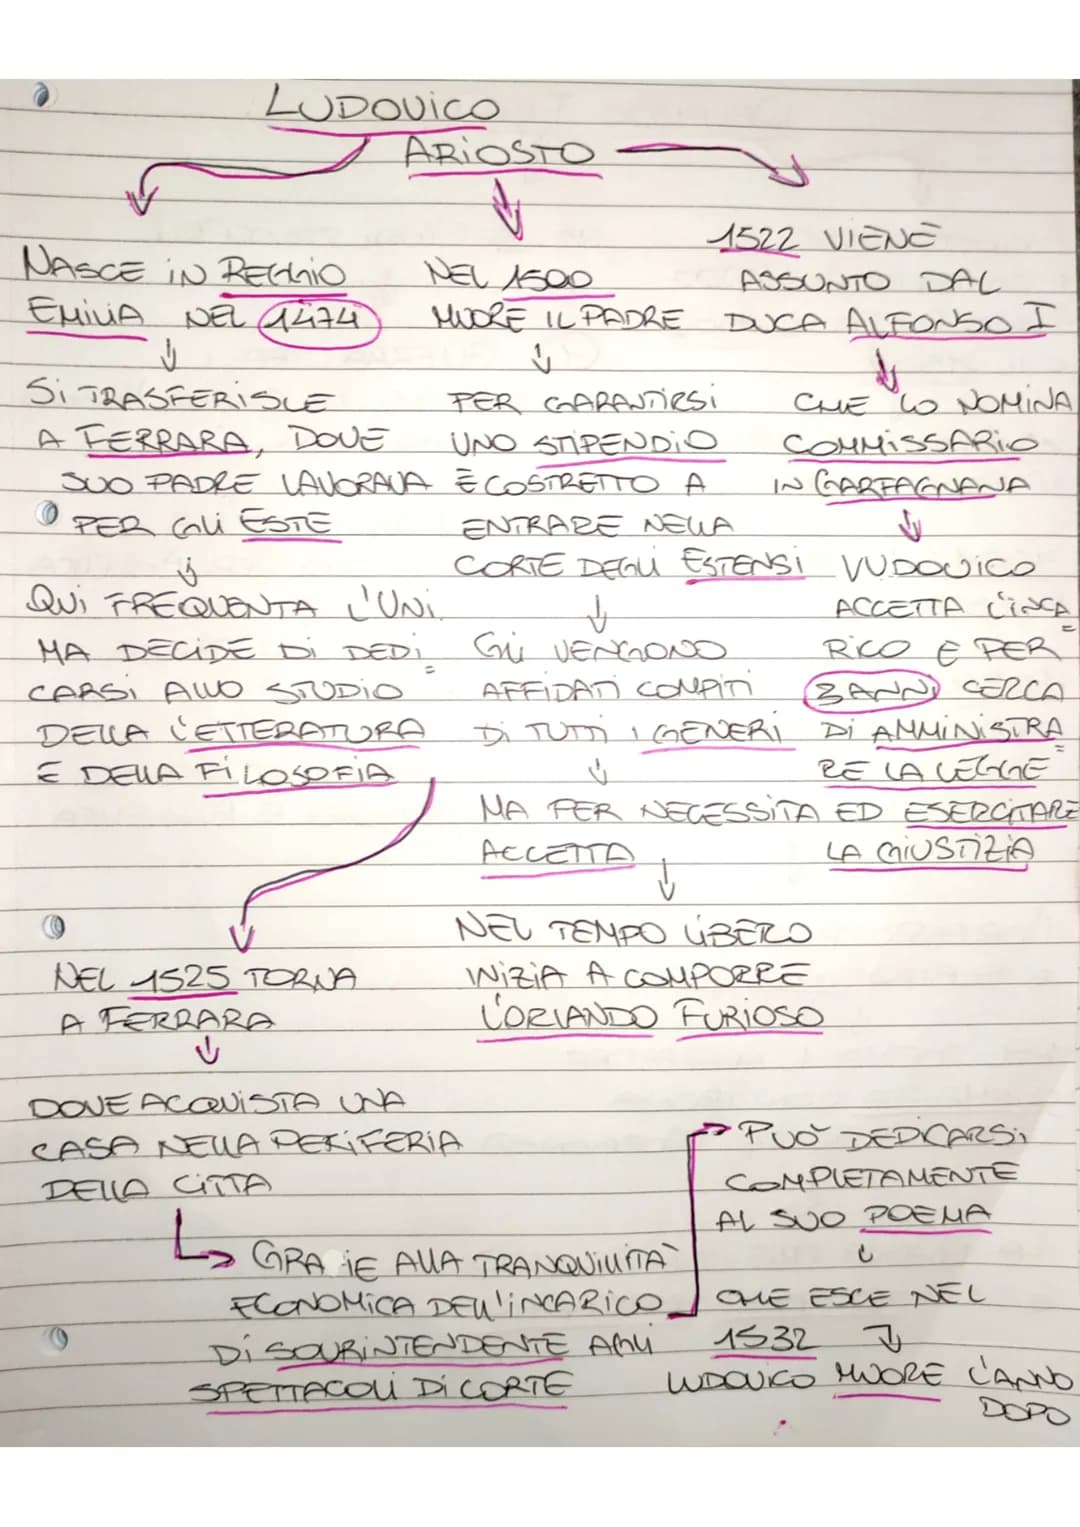 LUDOVICO
ARIOSTO
NASCE IN REGGIO
EMILIA NEL 1474
SI TRASFERISCE
A FERRARA, DOVE
SUO PADRE LAVORAVA
PER GLI ESTE
QUI FREQUENTA L'UNI.
MA DECIDE DI DEDI=
CARSI ALLO STUDIO
DELLA LETTERATURA
E DELLA FILOSOFIA
NEL 1500
MUORE IL PADRE
PER GARANTIRSI
UNO STIPENDIO
È COSTRETTO A
ENTRARE NELLA
CORTE DEGLI ESTENSI
GLI VENGONO
AFFIDATI COMPITI
DI TUTTI I GENERI
MA PER NECESSITA
ACCETTA
NEL TEMPO LIBERO
INIZIA A COMPORRE
L'ORLANDO FURIOSO
1522 VIENE
ASSUNTO DAL
DUCA ALFONSO I
CHE LO NOMINA
COMMISSARIO
IN GARFAGNANA
LUDOVICO
ACCETTA L'INCA=
RICO E PER
3 ANNI CERCA
DI AMMINISTRA=
RE LA LEGGE
ED ESERCITARE
LA GIUSTIZIA
NEL 1525 TORNA
A FERRARA
DOVE ACQUISTA UNA
CASA NELLA PERIFERIA
DELLA CITTA
GRA IE ALLA TRANQUILLITA'
ECONOMICA DELL'INCARICO
DI SOVRINTENDENTE AGLI
SPETTACOLI DI CORTE
PUO' DEDICARSI
COMPLETAMENTE
AL SUO POEMA
CHE ESCE NEL
1532
LUDOVICO MUORE L'ANNO
DOPO